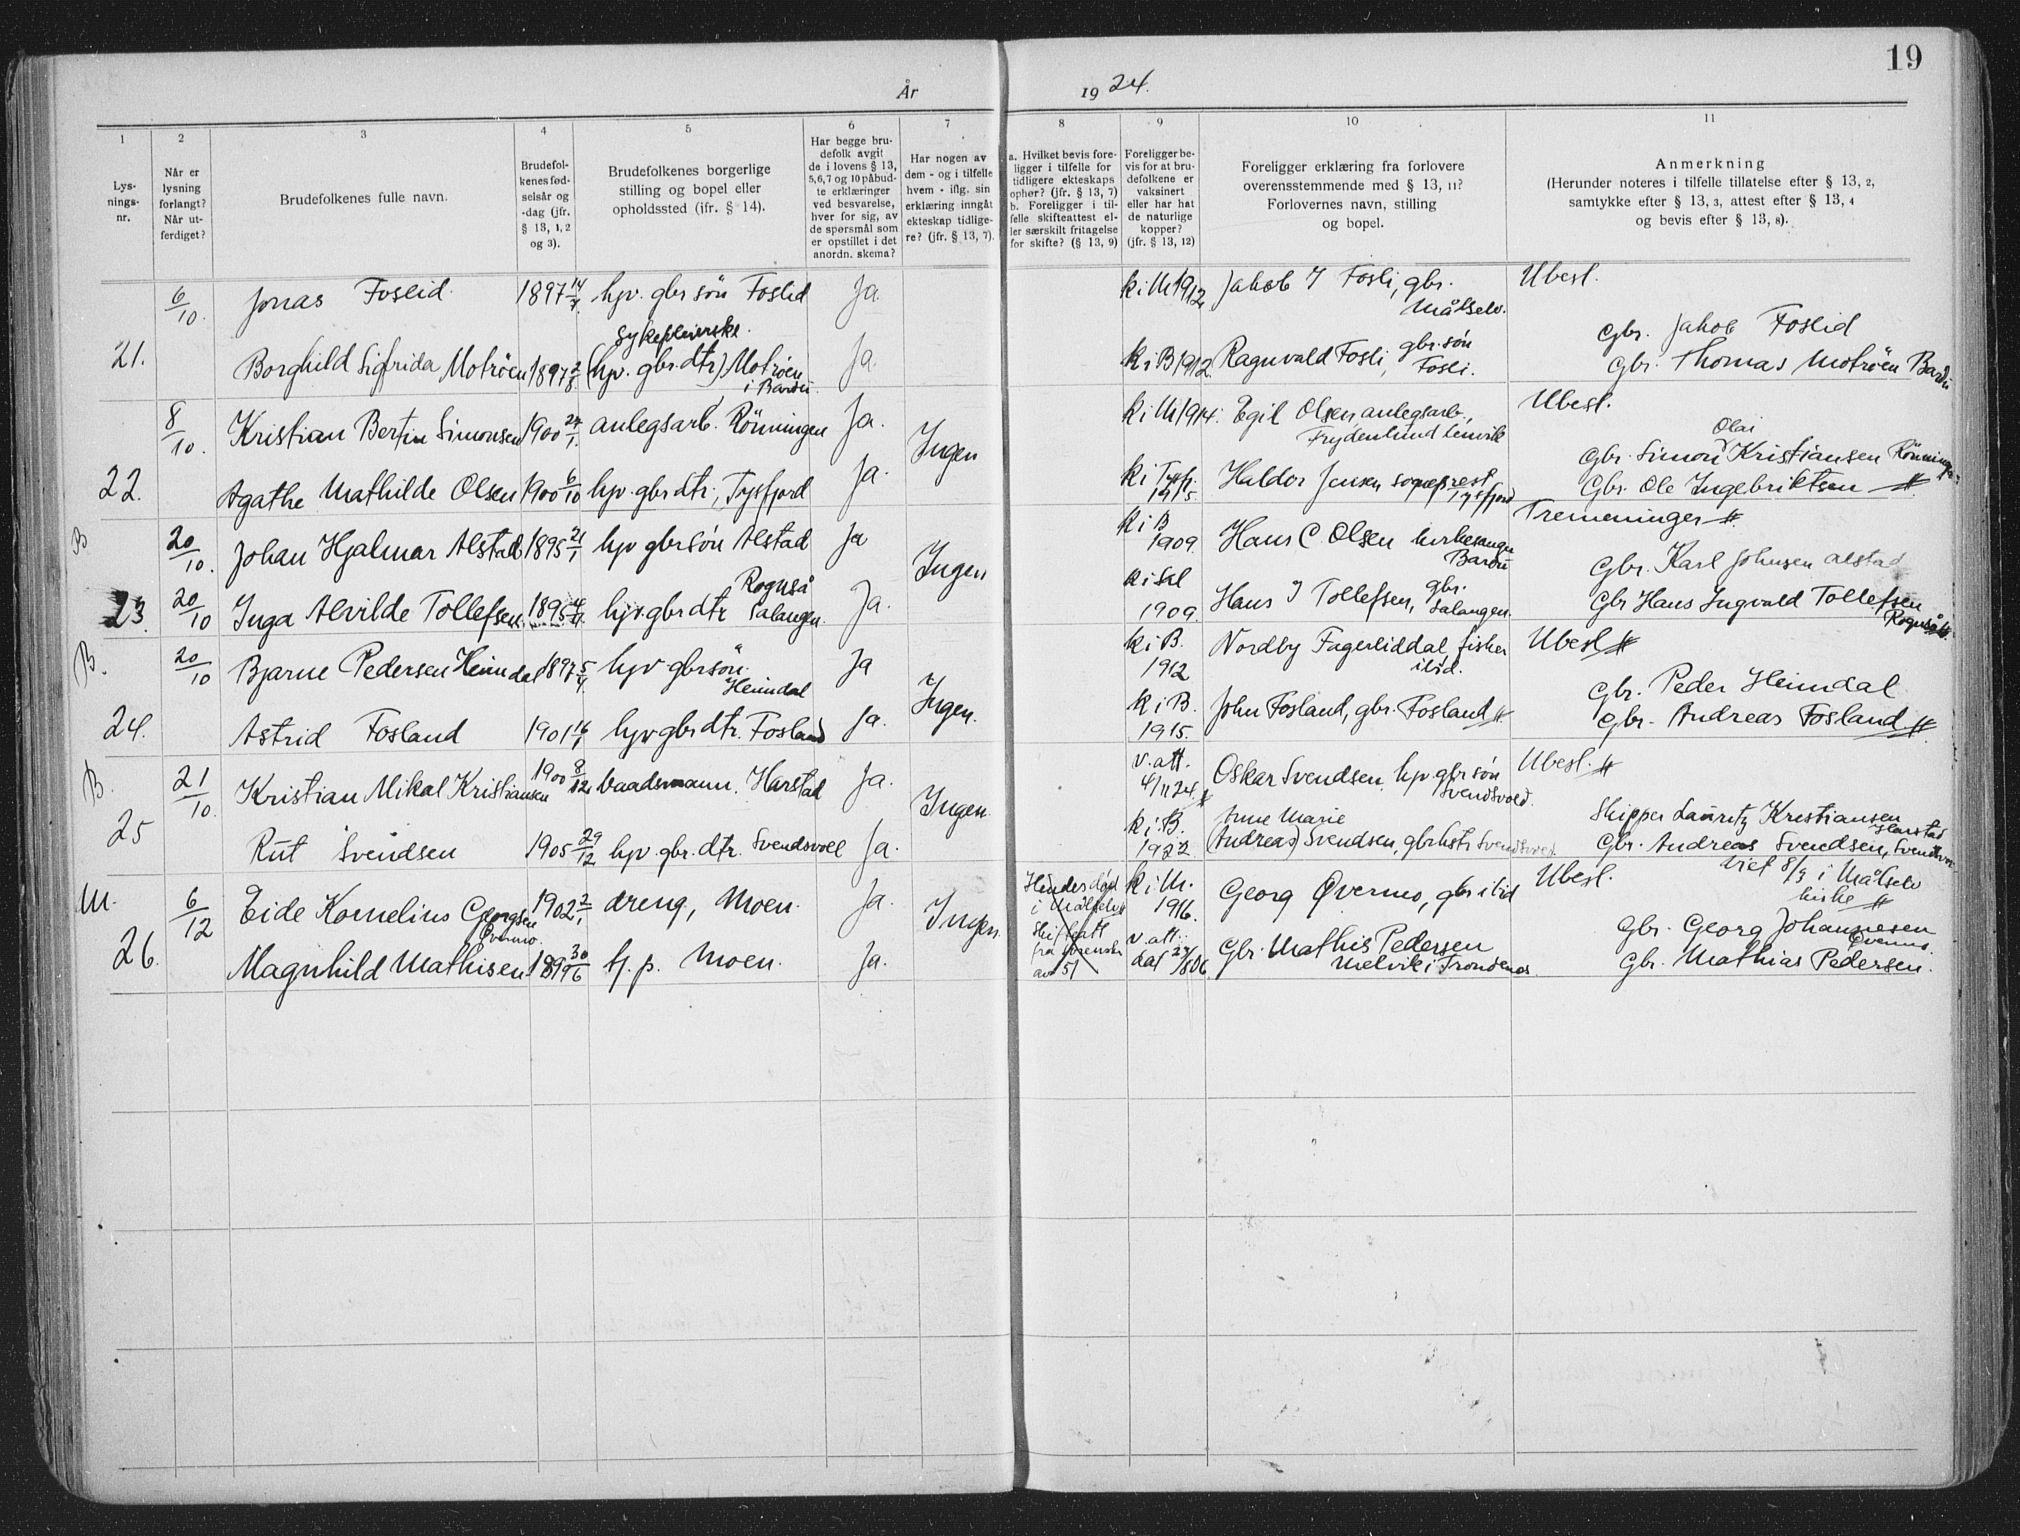 19
År 1924.
1 2 3 4 5 6 7 8 9 10 11
Lys-
nings-
nr.
Når er
lysning
forlangt?
Når ut-
ferdiget?
Brudefolkenes fulle navn.
Brudefol-
kenes fød-
selsår og
-dag (jfr.
§ 13, 1, 2
og 3).
Brudefolkenes borgerlige
stilling og bopel eller
opholdssted (ifr. § 14).
Har begge bru-
defolk avgit
de i lovens § 13,
5,6,7 og 10 påbud-
te erklæringer
ved besvarelse,
hver for sig, av
de spørsmål som
er opstillet i det
anordn. skema?
Har nogen av
dem - og i tilfelle
hvem - iflg. sin
erklæring inngåt
ekteskap tidlige-
re? (jfr. § 13, 7).
a. Hvilket bevis fore-
ligger i tilfelle for
tidligere ekteskaps
ophør? (jfr. § 13, 7)
b. Foreligger i til-
felle skifteattest el-
ler særskilt fritagelse
for skifte? (§ 13, 9)
Foreligger be-
vis for at bru-
defolkene er
vaksinert
eller har hat
de naturlige
kopper?
(jfr. § 13, 12)
Foreligger erklæring fra forlovere
overensstemmende med § 13, 11?
Forlovernes navn, stilling
og bopel.
Anmerkning
(Herunder noteres i tilfelle tillatelse efter § 13, 2,
samtykke efter § 13, 3, attest efter § 13, 4
og bevis efter § 13, 8).
6/10. Jonas Foslid 1897 14/7. hjv. gbrsön Foslid Ja. k i M 1912 Jakob J Fosli, gbr. Ubesl.
Målselv.
Sykepleierske. gbr. Jakob Foslid
21. Borghild Sigfrida Motröen 1897 2/8. (hjv. gbr.dtr) Motröen Ja. k i B 1912. Ragnvald Fosli, gbr.sön gbr. Thomas Motröen Bardu
i Bardu. Fosli.
8/10. Kristian Bertin Simonsen 1900 24/1. anlegsarb. Rönningen Ja. Ingen k i M 1914. Egil Olsen, anlegsarb., Ubesl.
Frydenlund Lenvik
Olai
gbr. Simon Kristiansen
22. Agathe Mathilde Olsen 1900 6/10 hjv. gbr dtr., Tysfjord Ja. k i Tysfj. 1915 Haldor Jensen sogneprest Tysfjord Gbr. Ole Ingebriktsen
B 20/10. Johan Hjalmar Alstad 1895 21/1 hjv gbrsön Alstad Ja Ingen k i B 1909. Hans C. Olsen kirkesanger Tremeninger
Bardu
gbr. Karl Johnsen Alstad
Rognså
23. 20/10 Inga Alvilde Tollefsen. 1895 hjv. gbr dtr Salangen. Ja. k i Sal 1909. Hans J Tollefsen, gbr. Salangen. Gbr Hans Ingvald Tollefsen
Rognså
B. 20/10 Bjarne Pedersen Heimdal 1897 5/4. hjv gbrsön. Ja Ingen. k i B. 1912 Nordby Fagerliddal, fisker Ubesl
Heimdal ilid.
gbr. Peder Heimdal
24. Astrid Fosland 1901 16/1 hjv gbr dtr. Fosland Ja. k i B. 1915. John Fosland, gbr. Fosland gbr. Andreas Fosland
B. 21/10. Kristian Mikal Kristiansen 1900 9/12 baadsmann. Harstad Ja. Ingen v. att. 4/11 24. Oskar Svendsen, hjv gbr sön Ubesl.
Svendsvold.
Skipper Lauritz Kristiansen
Harstad
Anne Marie
25 Rut Svendsen 1905 29/12 hjv. gbr. dtr. Svendsvoll Ja. k i B. 1922 (Andreas) Svendsen, gbrhstr Gbr. Andreas Svendsen,
M. 6/12 Eide Kornelius Georgsen 1902 2/1 dreng, Moen. Ja. Ingen. Hendes död k i M. 1916. Georg Övermo, gbr ilid Ubesl. Viet 8/3 i Målselv
Övermo. i Målselv kirke
skifteatt gbr. Georg Johannesen
Övermo.
26. Magnhild Mathisen. 1896 30/6 tj. p. Moen. Ja. fra v. att. dat Gbr. Mathis Pedersen gbr. Mathias Pedersen.
av 5/ Melvik i Trondenes